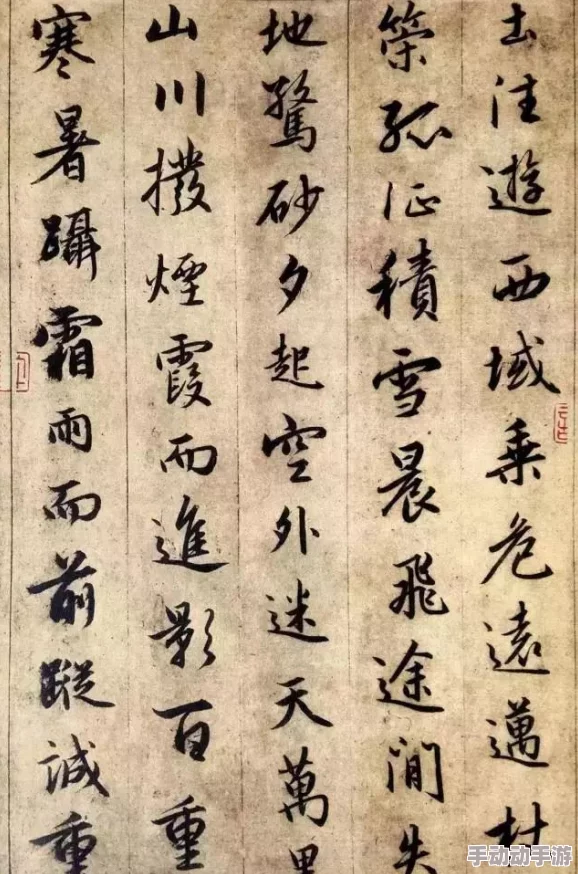 土往遊西域乘危遠邁杖
策孤征積雪晨飛途間失
地驚砂夕起空外迷天萬里
山川撥煙霞而進影百重
寒暑躡霜雨而前蹤誠重
手动动手游